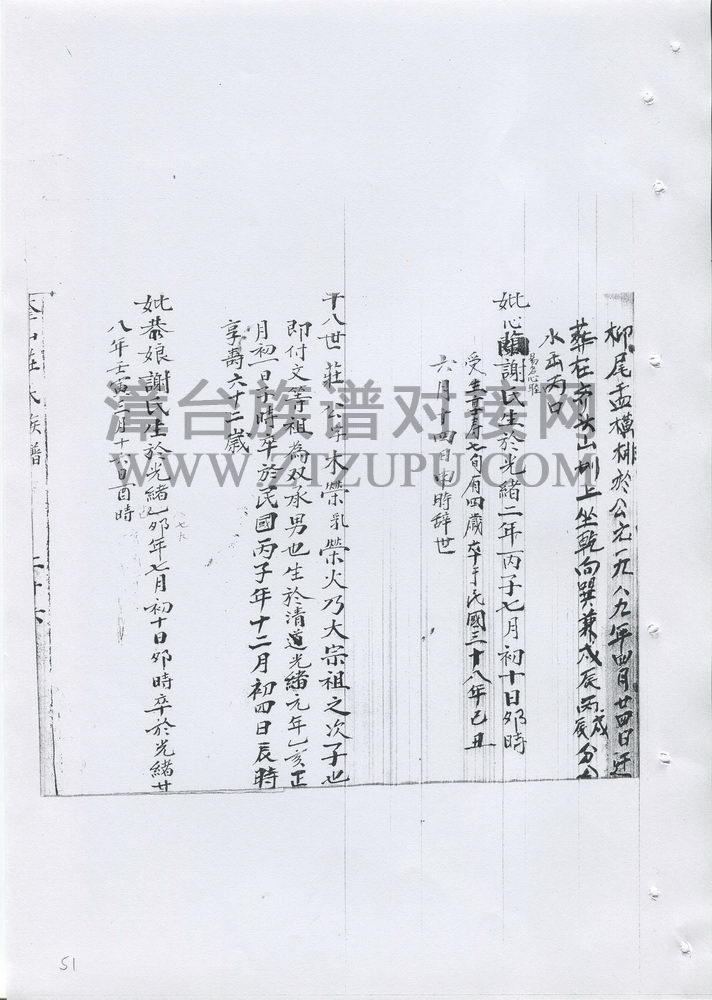 柳尾孟橫排於公元一九八九年四月廿四日迁
葬在 山 上坐乾向巽兼戍辰丙戍丙辰分金
水出丙口
妣心 謝氏生於光緒二年丙子七月初十日夘時
受生 寿七旬有四歲卒于民國三十八年己丑
六月十四日申時辞世
十八世莊公字木榮乳榮火乃大宗祖之次子也
即付文等祖為双承男也生於清道光緒元年乙亥正
月初一日子時卒於民國丙子年十二月初四日辰時
享壽六十二歲
妣恭娘謝氏生於光緒乙夘年七月初十日夘時卒於光緒廿
八年壬寅三月十 日酉時
氏族譜
漳台族谱对接网
WWW.ZTZUPU.COM
51